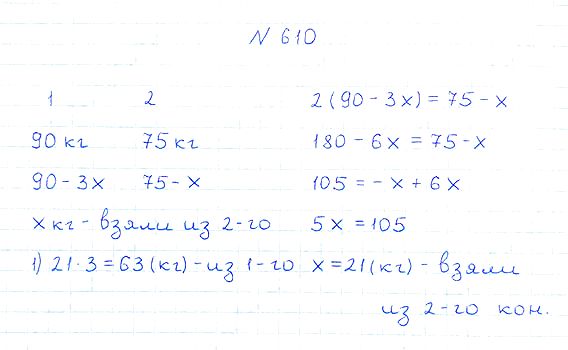 N 610
1 2 2(90 - 3x) = 75 - x
90 кг 75 кг 180 - 6x = 75 - x
90 - 3x 75 - x 105 = - x + 6x
x кг - взяли из 2-го 5x = 105
1) 21·3 = 63 (кг) - из 1-го x = 21 (кг) - взяли
из 2-го кон.